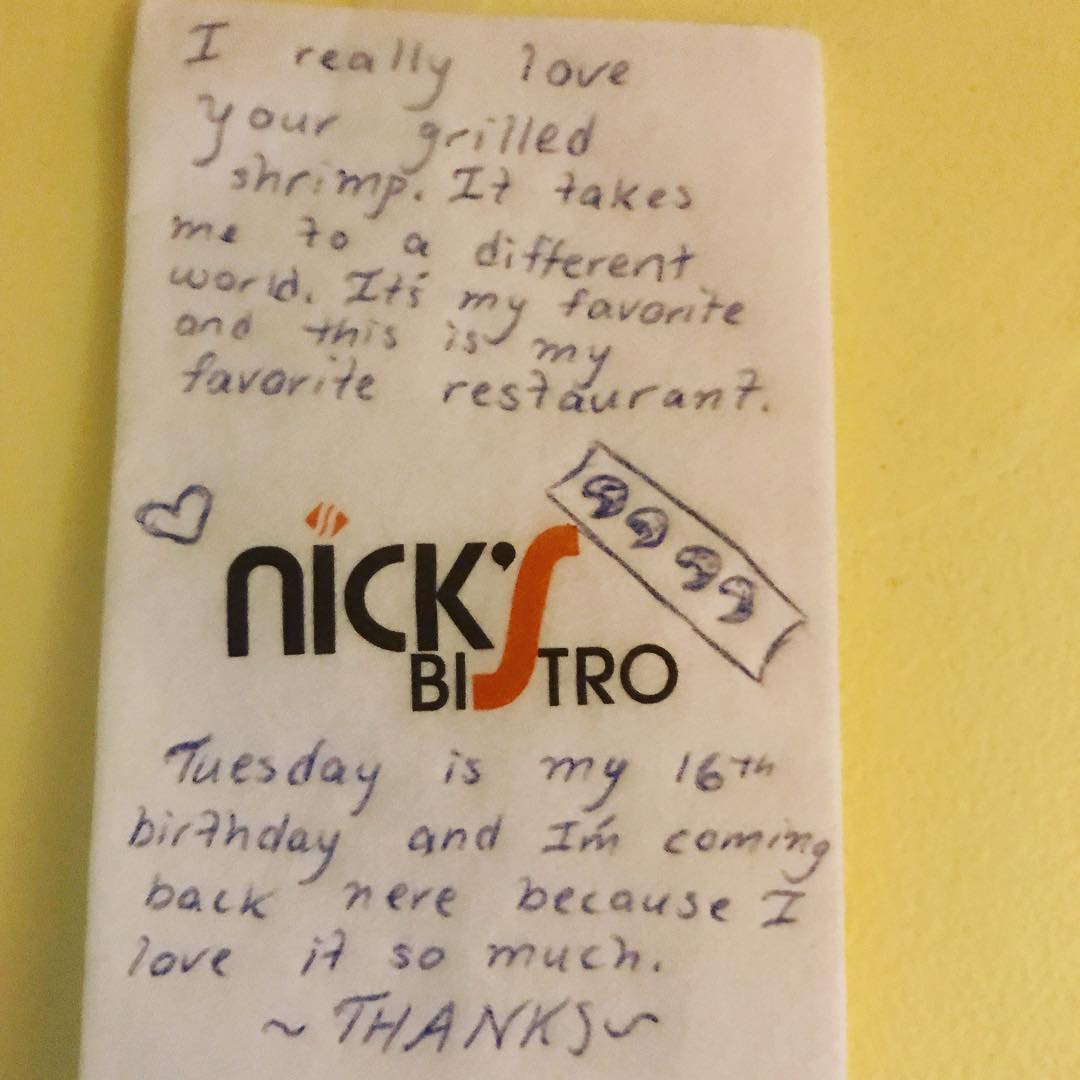 I really love
your grilled
shrimp. It takes
me to a different
world. It's my favorite
and this is my
favorite restaurant.
nick's
BISTRO
Tuesday is my 16th
birthday and I'm coming
back here because I
love it so much.
~THANKS~